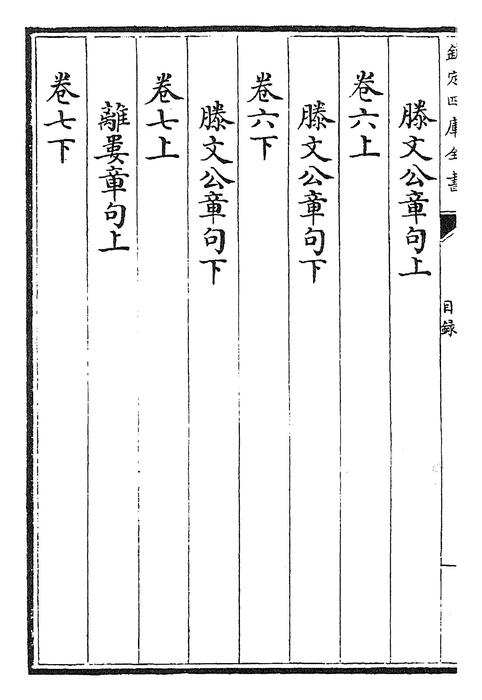 欽定四庫全書
目録
滕文公章句上
卷六上
滕文公章句下
卷六下
滕文公章句下
卷七上
離婁章句上
卷七下